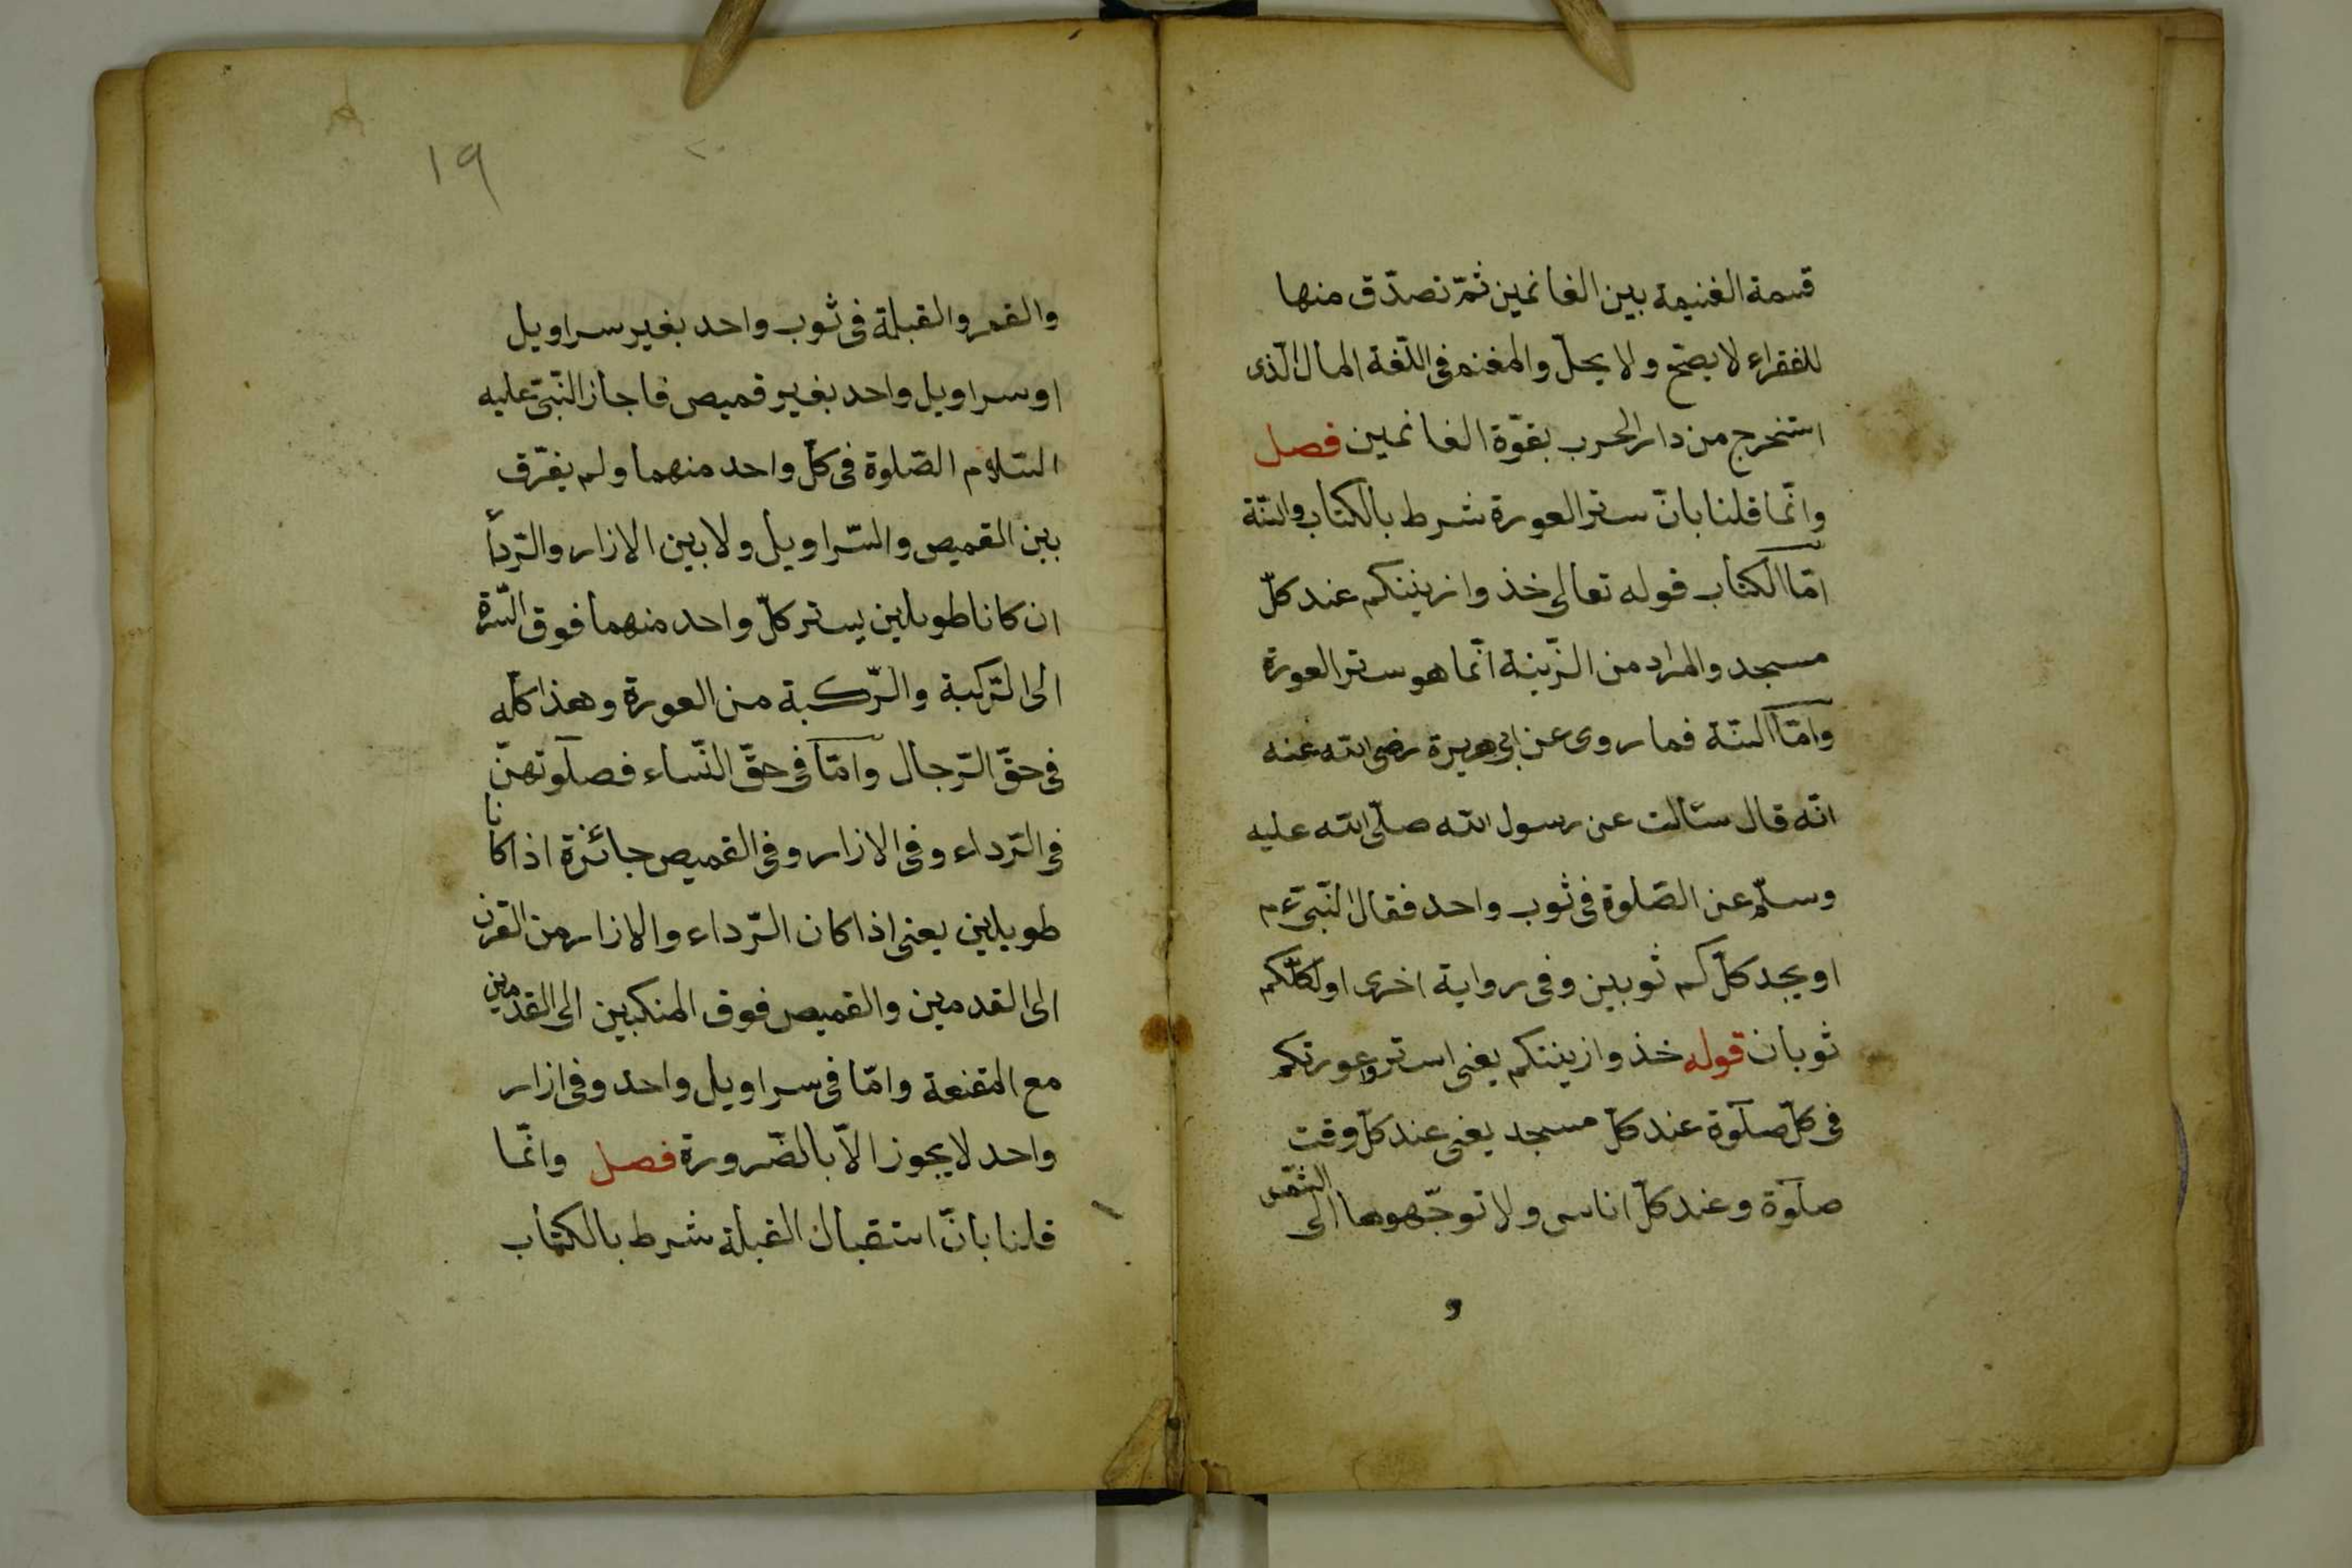 قسمة الغنيمة بين الغانمين ثمّ تصدّق منها
للفقراء لا يصحّ ولا يحلّ والمغنم فى اللّغة المال الّذى
استخرج من دار الحرب بقوّة الغانمين فصل
وانّما قلنا بانّ ستر العورة شرط بالكتاب والسّنّة
امّا الكتاب قوله تعالى خذوا زينتكم عند كلّ
مسجد والمراد من الزّينة انّما هو ستر العورة
وامّا السّنّة فما روى عن ابى هريرة رضى الله عنه
انّه قال سئالت عن رسول الله صلّى الله عليه
وسلّم عن الصّلوة فى ثوب واحد فقال النّبىّ ءم
او يجد كلّ كم ثوبين وفى رواية اخرى اولكلّكم
ثوبان قوله خذوا زينتكم يعنى استروا عورتكم
فى كلّ صلوة عند كلّ مسجد يعنى عند كلّ وقت
صلوة وعند كلّ اناس ولا توجّهوها الى الشّمس
و
١٩
٢٠
والقمر والقبلة فى ثوب واحد بغير سراويل
او سراويل واحد بغير قميص فاجاز النّبىّ عليه
السّلام الصّلوة فى كلّ واحد منهما ولم يفرّق
بين القميص والسّراويل ولا بين الازار والرّدأء
ان كانا طويلين يستر كلّ واحد منهما فوق السّرّة
الى الرّكبة والرّكبة من العورة وهذا كلّه
فى حقّ الرّجال وامّا فى حقّ النّساء فصلوتهنّ
فى الرّداء وفى الازار وفى القميص جائزة اذا كانا
طويلين يعنى اذا كان الرّداء والازار من القرن
الى القدمين والقميص فوق المنكبين الى القدمين
مع المقنعة وامّا فى سراويل واحد وفى ازار
واحد لا يجوز الاّ بالضّرورة فصل وانّما
قلنا بانّ استقبال القبلة شرط بالكتاب